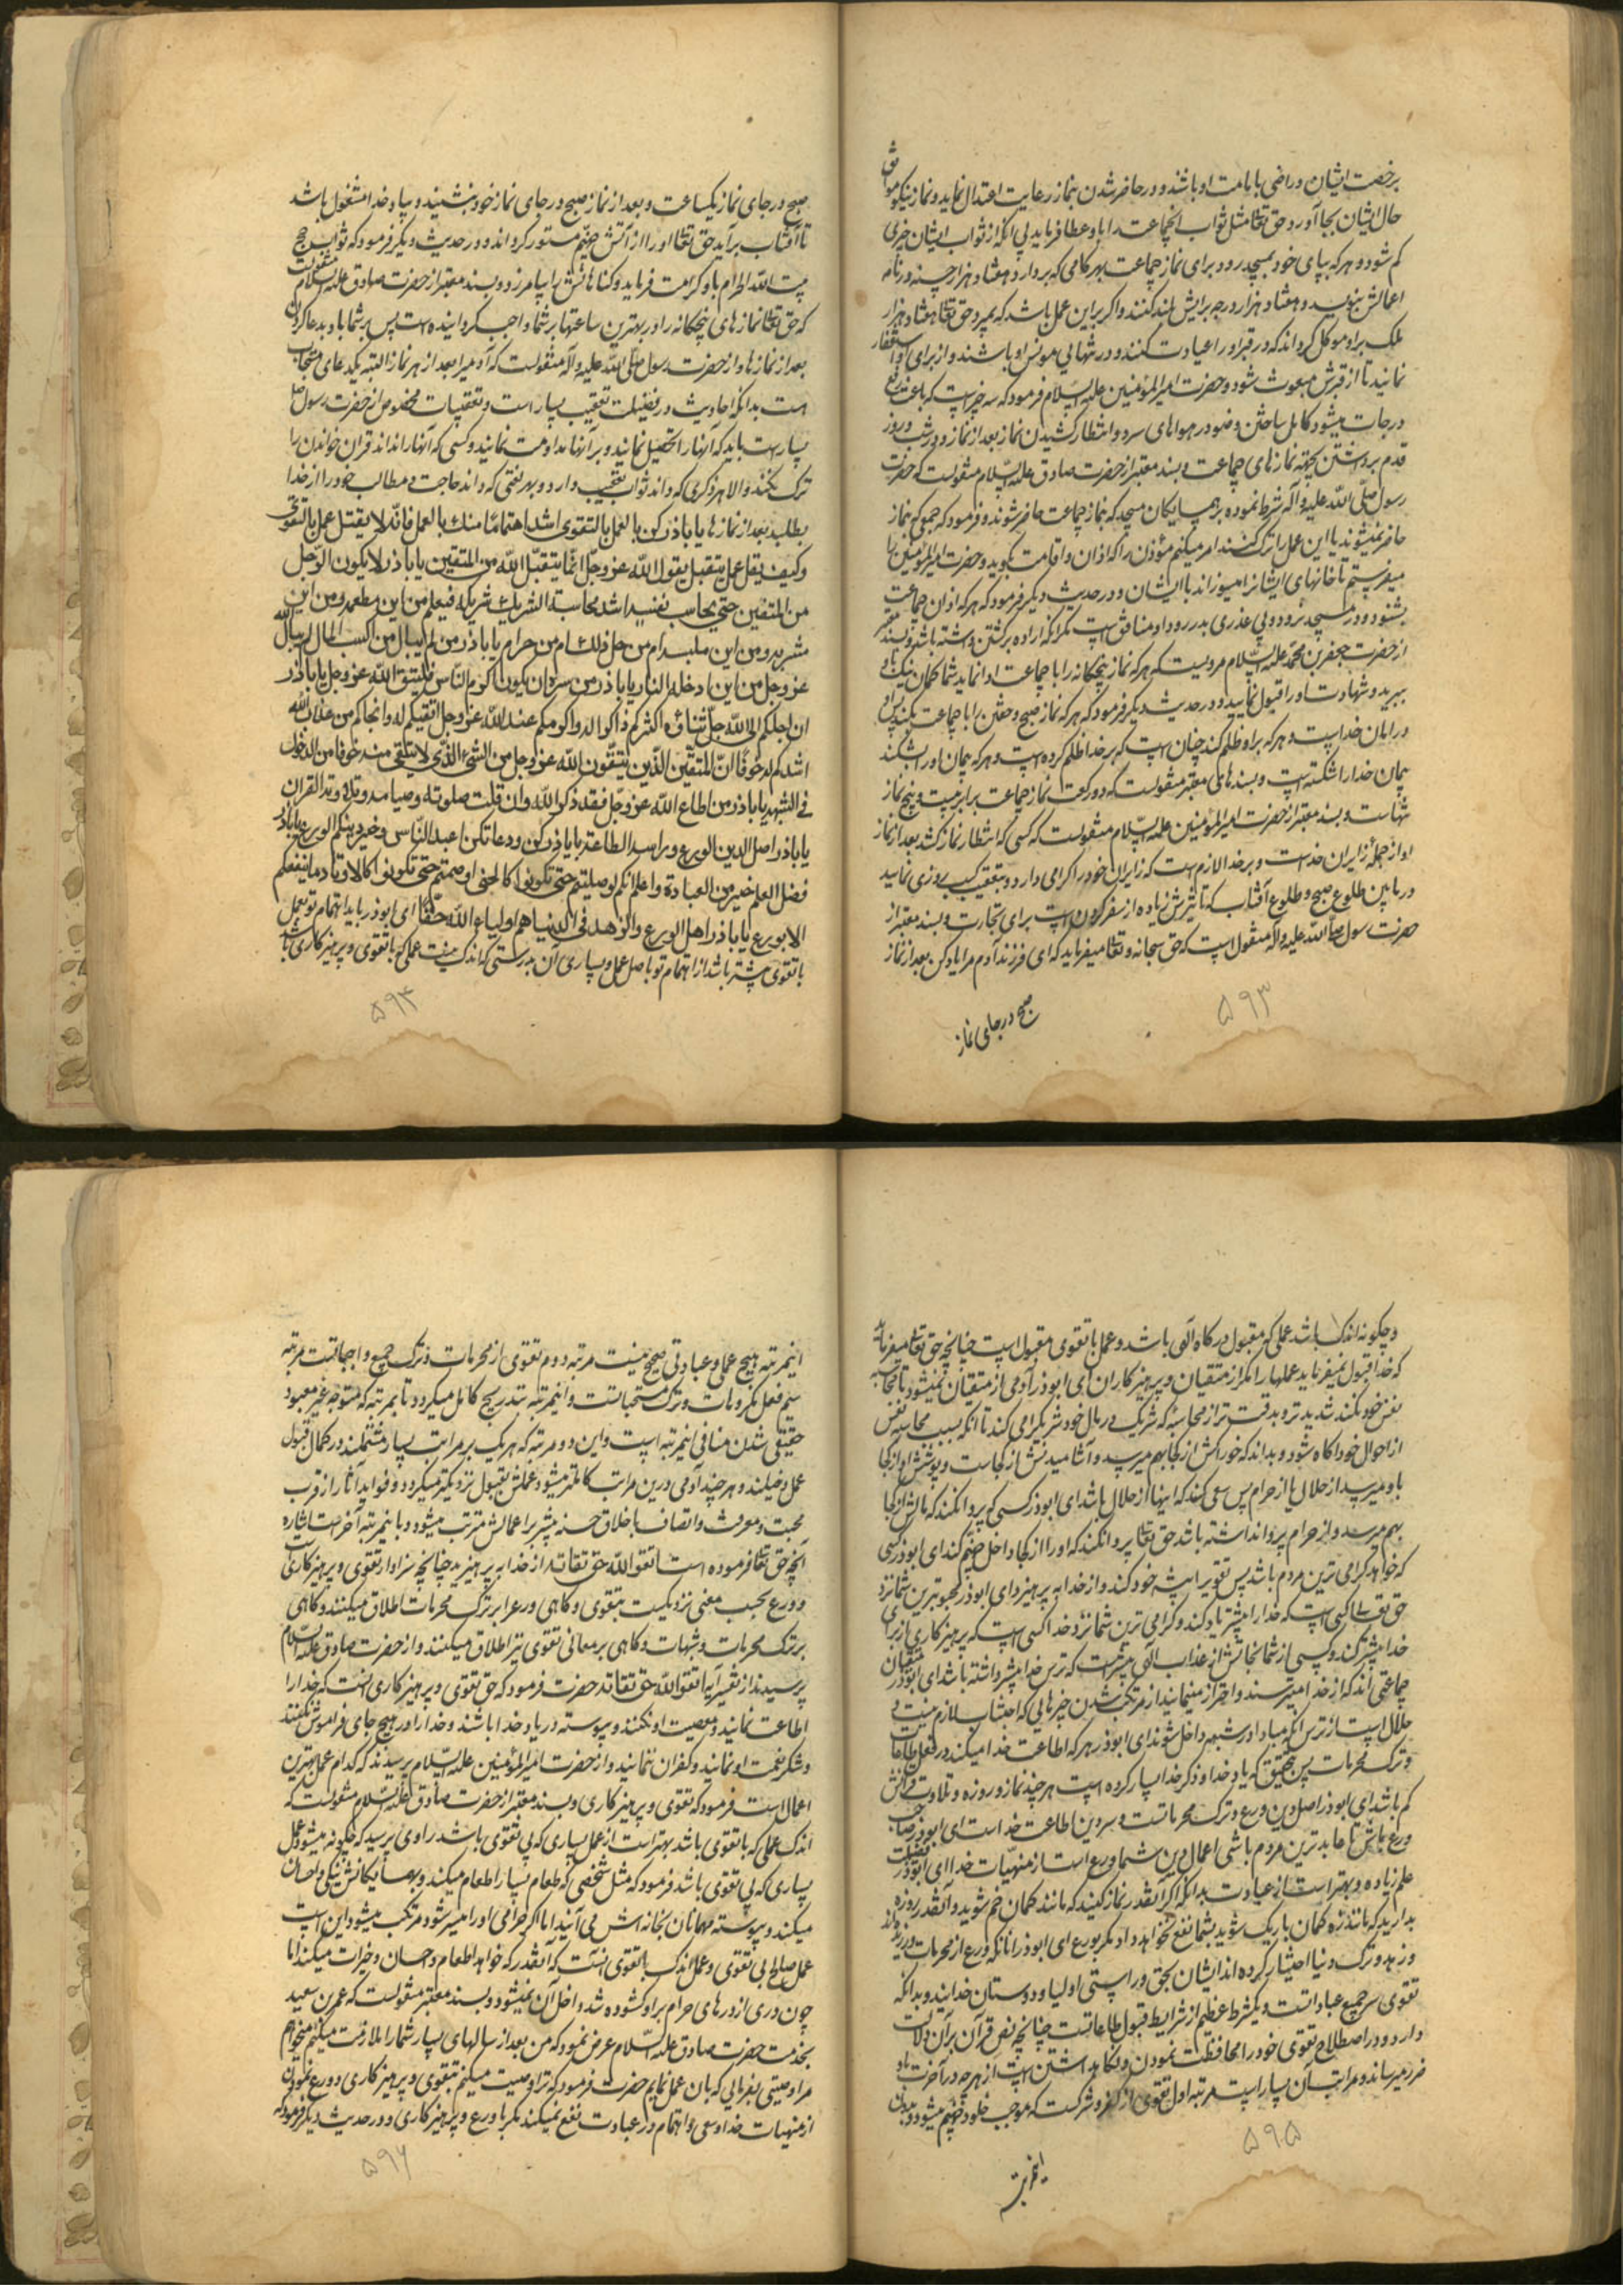 برخصت ایشان و راضی بامامت او باشند و در حاضر شدن بنماز رعایت اعتدال نماید و نماز نیکو موافق
حال ایشان بجا آورد حق تعالی مثل ثواب آنجماعت را باو عطا فرماید بی آنکه از ثواب ایشان چیزی
کم شود و هر که بپای خود بمسجد رود برای نماز جماعت بهر کامی که بردارد هفتاد هزار حسنه در نامه
اعمالش بنویسد و هفتاد هزار درجه برایش بلند کنند و اگر بر این عمل باشد که بمیرد حق تعالی هفتاد هزار
ملک بر او موکل گرداند که در قبر او را عیادت کنند و در تنهایی مونس او باشند و از برای او استغفار
نمایند تا از قبرش مبعوث شود و حضرت امیر المؤمنین علیه السلام فرمود که سه چیز است که باعث رفع
درجات میشود کامل ساختن وضو در هواهای سرد و انتظار کشیدن نماز بعد از نماز و در شب و روز
قدم برداشتن بجهة نمازهای جماعت و بسند معتبر از حضرت صادق علیه السلام منقولست که حضرت
رسول صلی الله علیه و آله شرط نموده بر همسایگان مسجد که بنماز جماعت حاضر شوند و فرمود که جمعی که بنماز
حاضر نمیشوند یا این عمل را ترک کنند امر میکنم مؤذن را که اذان و اقامت بگوید و حضرت امیر المؤمنین را
میفرستم تا خانهای ایشانرا بسوزاند با ایشان و در حدیث دیگر فرمود که هر که اذان جماعت
بشنود و در مسجد بود و بی عذری بدر رود او منافق است مگر آنکه اراده برگشتن داشته باشد و بسند معتبر
از حضرت جعفر بن محمد علیه السلام مرویست که هر که نماز پنجگانه را با جماعت ادا نماید شما گمان نیک باو
ببرید و شهادت او را قبول نمایید و در حدیث دیگر فرمود که هر که نماز صبح و خفتن را با جماعت بکند پس او
در امان خداست و هر که بر او ظلم کند چنان است که بر خدا ظلم کرده است و هر که پیمان او را بشکند
پیمان خدا را شکسته است و بسندهای معتبر منقولست که دو رکعت نماز جماعت برابر بیست و پنج نماز
تنهاست و بسند معتبر از حضرت امیر المؤمنین علیه السلام منقولست که کسی که انتظار نماز کشد بعد از نماز
او از جمله زایران خداست و بر خدا لازم است که زایران خود را گرامی دارد و تعقیب کسب روزی نمایید
در مابین طلوع صبح و طلوع آفتاب که تأثیرش زیاده از سفر کردن است برای تجارت و بسند معتبر از
حضرت رسول صلی الله علیه و آله منقول است که حق سبحانه و تعالی میفرماید که ای فرزند آدم مرا یاد کن بعد از نماز
۵۹۳
صبح در جای نماز
صبح در جای نماز یکساعت و بعد از نماز صبح در جای نماز خود بنشیند و بیاد خدا مشغول باشد
تا آفتاب برآید حق تعالی او را از آتش جهنم مستور گرداند و در حدیث دیگر فرمود که ثواب حج
بیت الله الحرام باو کرامت فرماید و گناهانش را بیامرزد و بسند معتبر از حضرت صادق علیه السلام منقولست
که حق تعالی نمازهای پنجگانه را در بهترین ساعتها بر شما واجب گردانیده است پس بر شما باد بدعا کردن
بعد از نمازها و از حضرت رسول صلی الله علیه و آله منقولست که آدمیرا بعد از هر نماز البته یک دعای مستجاب
است بدانکه احادیث در فضیلت تعقیب بسیار است و تعقیبات مخصوص از حضرت رسول ص
بسیار است باید که آنها را تحصیل نمایند و بر آنها مداومت نمایند و کسی که آنها را نداند قرآن خواندن را
ترک نکند و الا هر ذکری که داند ثواب تعقیب دارد و بهر لغتی که داند حاجت و مطالب خود را از خدا
بطلبد بعد از نمازها یا باذر کن بالعمل بالتقوی اشد اهتماما منک بالعمل فانه لا یقتل عمل بالتقوی
وکیف یقل عمل یتقبل یقول الله عز وجل انما یتقبل الله من المتقین یا باذر لا یکون الرجل
من المتقین حتی یحاسب نفسه اشد محاسبة الشریک شریکه فیعلم من این مطعمه و من این
مشربه و من این ملبسه ام من حل ذلک ام من حرام یا باذر من لم یبال من این اکتسب المال لم یبال الله
عز وجل من این ادخله النار یا باذر من سره ان یکون اکرم الناس فلیتق الله عز وجل یا باذر
ان احبکم الی الله جل ثناؤه اکثرکم ذاکرا له و اکرمکم عند الله عز وجل اتقیکم له و انجاکم من عذاب الله
اشدکم له خوفا ان المتقین الذین یتقون الله عز وجل من الشیء الذی لا یتقی منه خوفا من الدخول
فی الشبهة یا باذر من اطاع الله عز وجل فقد ذکر الله و ان قلت صلوته و صیامه و تلاوته القرآن
یا باذر اصل الدین الورع و راسه الطاعة یا باذر کن ورعا تکن اعبد الناس و خیر دینکم الورع یا باذر
فضل العلم خیر من العبادة و اعلم انکم لو صلیتم حتی تکونوا کالحنی او صمتم حتی تکونوا کالاوتاد ما ینفعکم
الا بورع یا باذر اهل الورع و الزهد فی الدنیا هم اولیاء الله حقا ای ابوذر باید اهتمام تو بعمل
با تقوی بیشتر باشد از اهتمام تو باصل عمل و بسیاری آن بدرستی که اندک نیست عملی که با تقوی و پرهیزکاری باشد
۵۹۴
و چگونه اندک باشد عملی که مقبول درگاه الهی باشد و عمل با تقوی مقبول است چنانچه حق تعالی میفرماید
که خدا قبول نمیفرماید عملها را مگر از متقیان و پرهیزکاران ای ابوذر آدمی از متقیان نمیشود تا محاسبه
نفس خود نکند شدیدتر و بدقت تر از محاسبهٔ که شریک در مال خود شریکرا می کند تا آنکه بسبب محاسبه نفس
از احوال خود آگاه شود و بداند که خوراکش از کجا بهم میرسد و آشامیدنش از کجاست و پوشش او از کجا
باو میرسد از حلال یا از حرام پس سعی کند که اینها از حلال باشد ای ابوذر کسی که پروا نکند که مالش از کجا
بهم میرسد و از حرام پروا نداشته باشد حق تعالی پروا نکند که او را از کجا داخل جهنم کند ای ابوذر کسی
که خواهد گرامی ترین مردم باشد پس تقوی را پیشه خود کند و از خدا بپرهیزد ای ابوذر محبوبترین شما نزد
حق تعالی کسی است که خدا را بیشتر یاد کند و گرامی ترین شما نزد خدا کسی است که پرهیزکاری از برای
خدا بیشتر کند و کسی از شما نجاتش از عذاب الهی بیشتر است که ترس خدا بیشتر داشته باشد ای ابوذر متقیان
جماعتی اند که از خدا میترسند و احتراز مینمایند از مرتکب شدن چیزهایی که اجتناب لازم نیست و
حلال است از ترس آنکه مبادا در شبهه داخل شوند ای ابوذر هر که اطاعت خدا میکند در فعل طاعات
و ترک محرمات پس بتحقیق که یاد خدا و ذکر خدا بسیار کرده است هر چند نماز و روزه و تلاوت قرآنش
کم باشد ای ابوذر اصل دین ورع و ترک محرماتست و سر دین اطاعت خدا است ای ابوذر صاحب
ورع باش تا عابدترین مردم باشی اعمال دین شما ورع است از منهیات خدا ای ابوذر فضیلت
علم زیاده و بهتر است از عبادت بدانکه اگر آنقدر نماز کنید که مانند کمان خم شوید و آنقدر روزه
بدارید که مانند زه کمان باریک شوید بشما نفع نخواهد داد مگر بورع ای ابوذر آنانکه ورع از محرمات ورزیده اند
و زهد و ترک دنیا اختیار کرده اند ایشان بحق و راستی اولیا و دوستان خدایند و بدانکه
تقوی سر جمیع عباداتست و یکشرط عظیم از شرایط قبول طاعاتست چنانچه نص قرآن بر آن دلالت
دارد و در اصطلاح تقوی خود را محافظت نمودن و نگاه داشتن است از هر چه در آخرت باو
ضرر میرساند و مراتب آن بسیار است مرتبه اول تقوی از کفر و شرکست که موجب خلود جهنم میشود و بدون
۵۹۵
اینمرتبه
اینمرتبه هیچ عملی و عبادتی صحیح نیست مرتبه دوم تقوی از محرمات و ترک جمیع واجباتست مرتبه
سیم فعل مکروهات و ترک مستحباتست و اینمرتبه بتدریج کامل میگردد تا بمرتبه که متوجه غیر معبود
حقیقی شدن منافی اینمرتبه است و این دو مرتبه که هر یک بر مراتب بسیار مشتملند در کمال قبول
عمل دخیلند و هر چند آدمی در این مراتب کاملتر میشود عملش بقبول نزدیکتر میگردد و فواید آثار از قرب
محبت و معرفت و اتصاف باخلاق حسنه بیشتر بر اعمالش مترتب میشود و باینمرتبه آخر است اشاره
آنچه حق تعالی فرموده است اتقوا الله حق تقاته از خدا بپرهیزید چنانچه سزاوار تقوی و پرهیزکاری است
و ورع بحسب معنی نزدیکست بتقوی و گاهی ورع را بر ترک محرمات اطلاق میکنند و گاهی
بر ترک محرمات و شبهات و گاهی بر معانی تقوی نیز اطلاق میکنند و از حضرت صادق علیه السلام
پرسیدند از تفسیر آیه اتقوا الله حق تقاته حضرت فرمود که حق تقوی و پرهیزکاری آنست که خدا را
اطاعت نمایند و معصیت او نکنند و پیوسته در یاد خدا باشند و خدا را در هیچ جای فراموش نکنند
و شکر نعمت او نمایند و کفران ننمایند و از حضرت امیر المؤمنین علیه السلام پرسیدند که کدام عمل بهترین
اعمال است فرمود که تقوی و پرهیزکاری و بسند معتبر از حضرت صادق علیه السلام منقولست که
اندک عملی که با تقوی باشد بهتر است از عمل بسیاری که بی تقوی باشد راوی پرسید که چگونه میشود عمل
بسیاری که بی تقوی باشد فرمود که مثل شخصی که طعام بسیار اطعام میکند و بهمسایگانش نیکی و احسان
میکند و پیوسته مهمانان بخانه اش می آیند اما اگر حرامی او را میسر شود مرتکب میشود این است
عمل صالح بی تقوی و عمل اندک با تقوی آنست که آنقدر که خواهد اطعام و احسان و خیرات میکند اما
چون دری از درهای حرام بر او گشوده شد داخل آن نمیشود و بسند معتبر منقولست که عمرو بن سعید
بخدمت حضرت صادق علیه السلام عرض نمود که من بعد از سالهای بسیار شما را ملازمت میکنم میخواهم
مرا وصیتی بفرمایی که بآن عمل نمایم حضرت فرمود که ترا وصیت میکنم بتقوی و پرهیزکاری و ورع نمودن
از منهیات خدا و سعی و اهتمام در عبادت نفع نمیکند مگر با ورع و پرهیزکاری و در حدیث دیگر فرمود که
۵۹۶